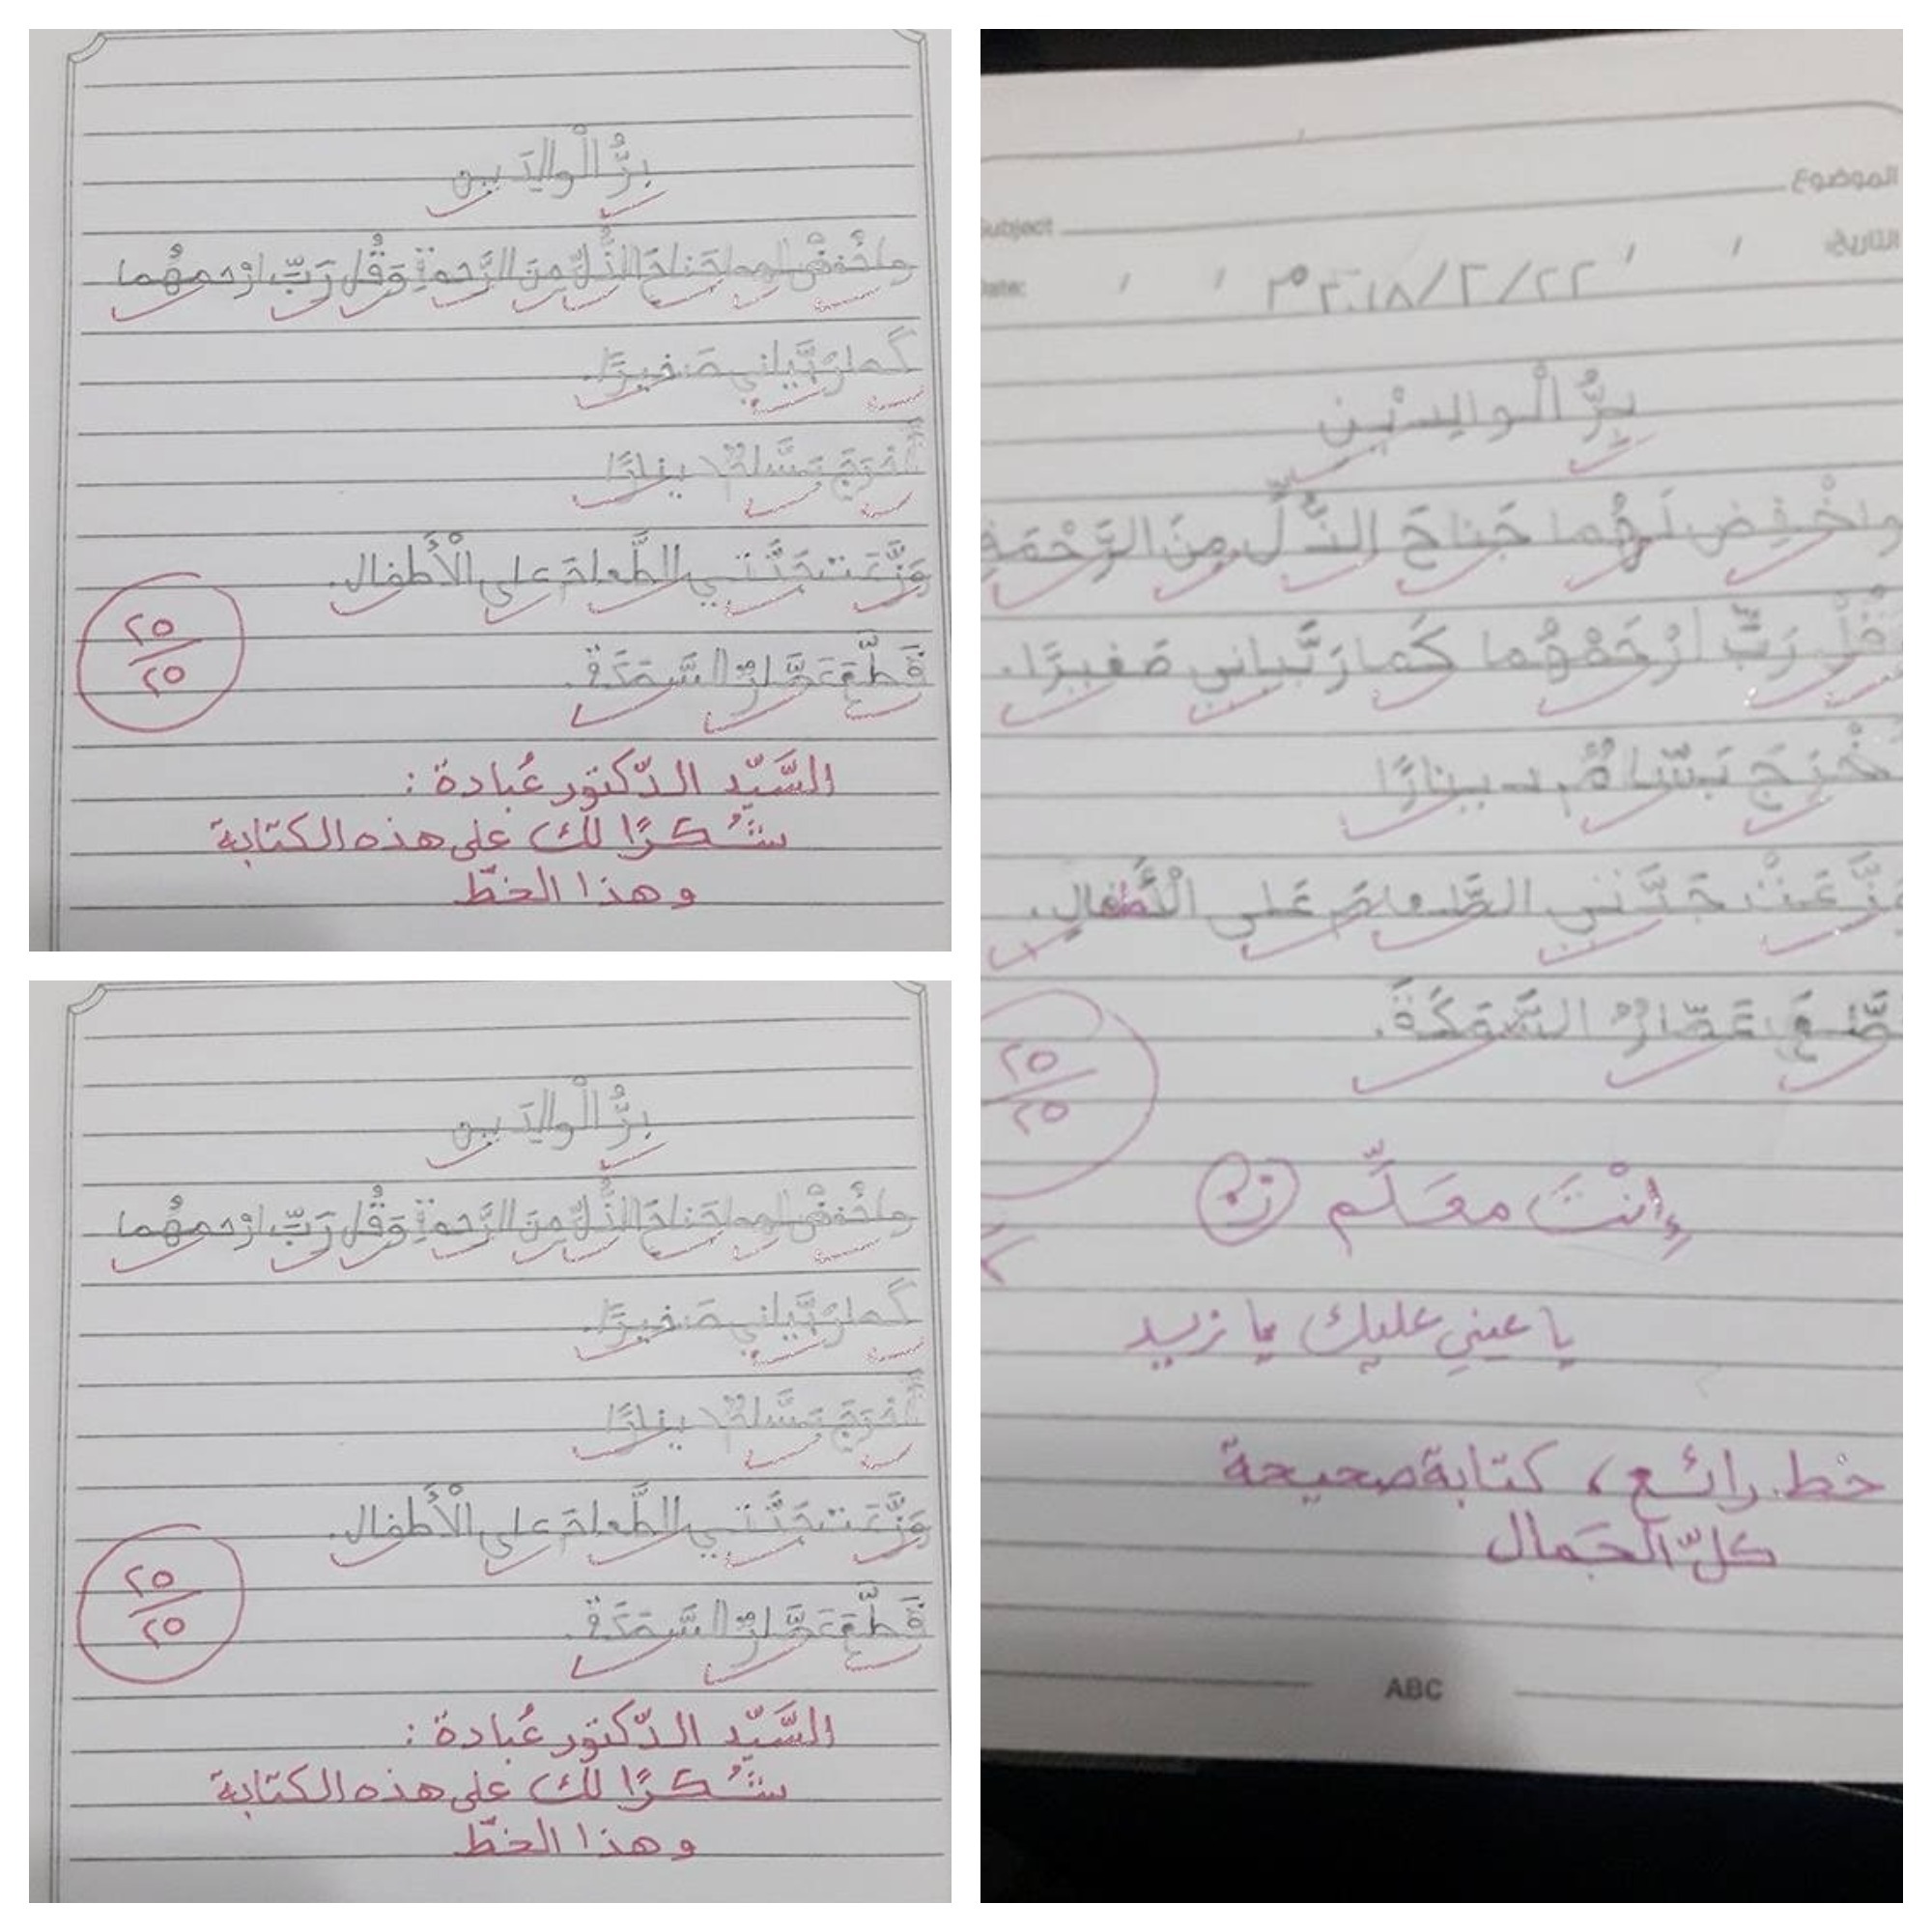 بِرُّ الْوالِدَيين
واخْفِضْ لهما جَناحَ الذُّلِّ مِنَ الرَّحمةِ وَقُل رَبِّ ارْحمهُما
كَما رَبَّياني صَغيرًا.
أَخْرَجَ بَسّامٌ دينارًا
وَزَّعَت جَدَّتي الطَّعامَ عَلى الْأَطفال.
قَطَّعَ عَمّارٌ السَّمَكَةَ.
٢٥
٢٥
السَّيّد الدّكتور عُبادة :
شُكرًا لك على هذه الكتابة
وهذا الخطّ
بِرُّ الْوالِدَيين
واخْفِضْ لهما جَناحَ الذُّلِّ مِنَ الرَّحمةِ وَقُل رَبِّ ارْحمهُما
كَما رَبَّياني صَغيرًا.
أَخْرَجَ بَسّامٌ دينارًا
وَزَّعَت جَدَّتي الطَّعامَ عَلى الْأَطفال.
قَطَّعَ عَمّارٌ السَّمَكَةَ.
٢٥
٢٥
السَّيّد الدّكتور عُبادة :
شُكرًا لك على هذه الكتابة
وهذا الخطّ
الموضوع
Subject
التاريخ:
Date:
٢٢/٢/٢٠١٨م
بِرُّ الْوالِديْنِ
واخْفِض لَهُما جَناحَ الذُّلِّ مِنَ الرَّحْمَةِ
قُلْ رَبِّ ارْحَمْهُما كَما رَبَّياني صَغيرًا.
خْرَجَ بَسّامٌ دينارًا
وَزَّعَتْ جَدَّتي الطَّعامَ عَلى الْأَطفالِ.
طَّعَ عَمّارٌ السَّمَكَةَ.
٢٥
٢٥
أنْتَ معَلِّم
يا عيني عليك يا زيد
خط رائع، كتابة صحيحة
كلّ الجَمال
ABC